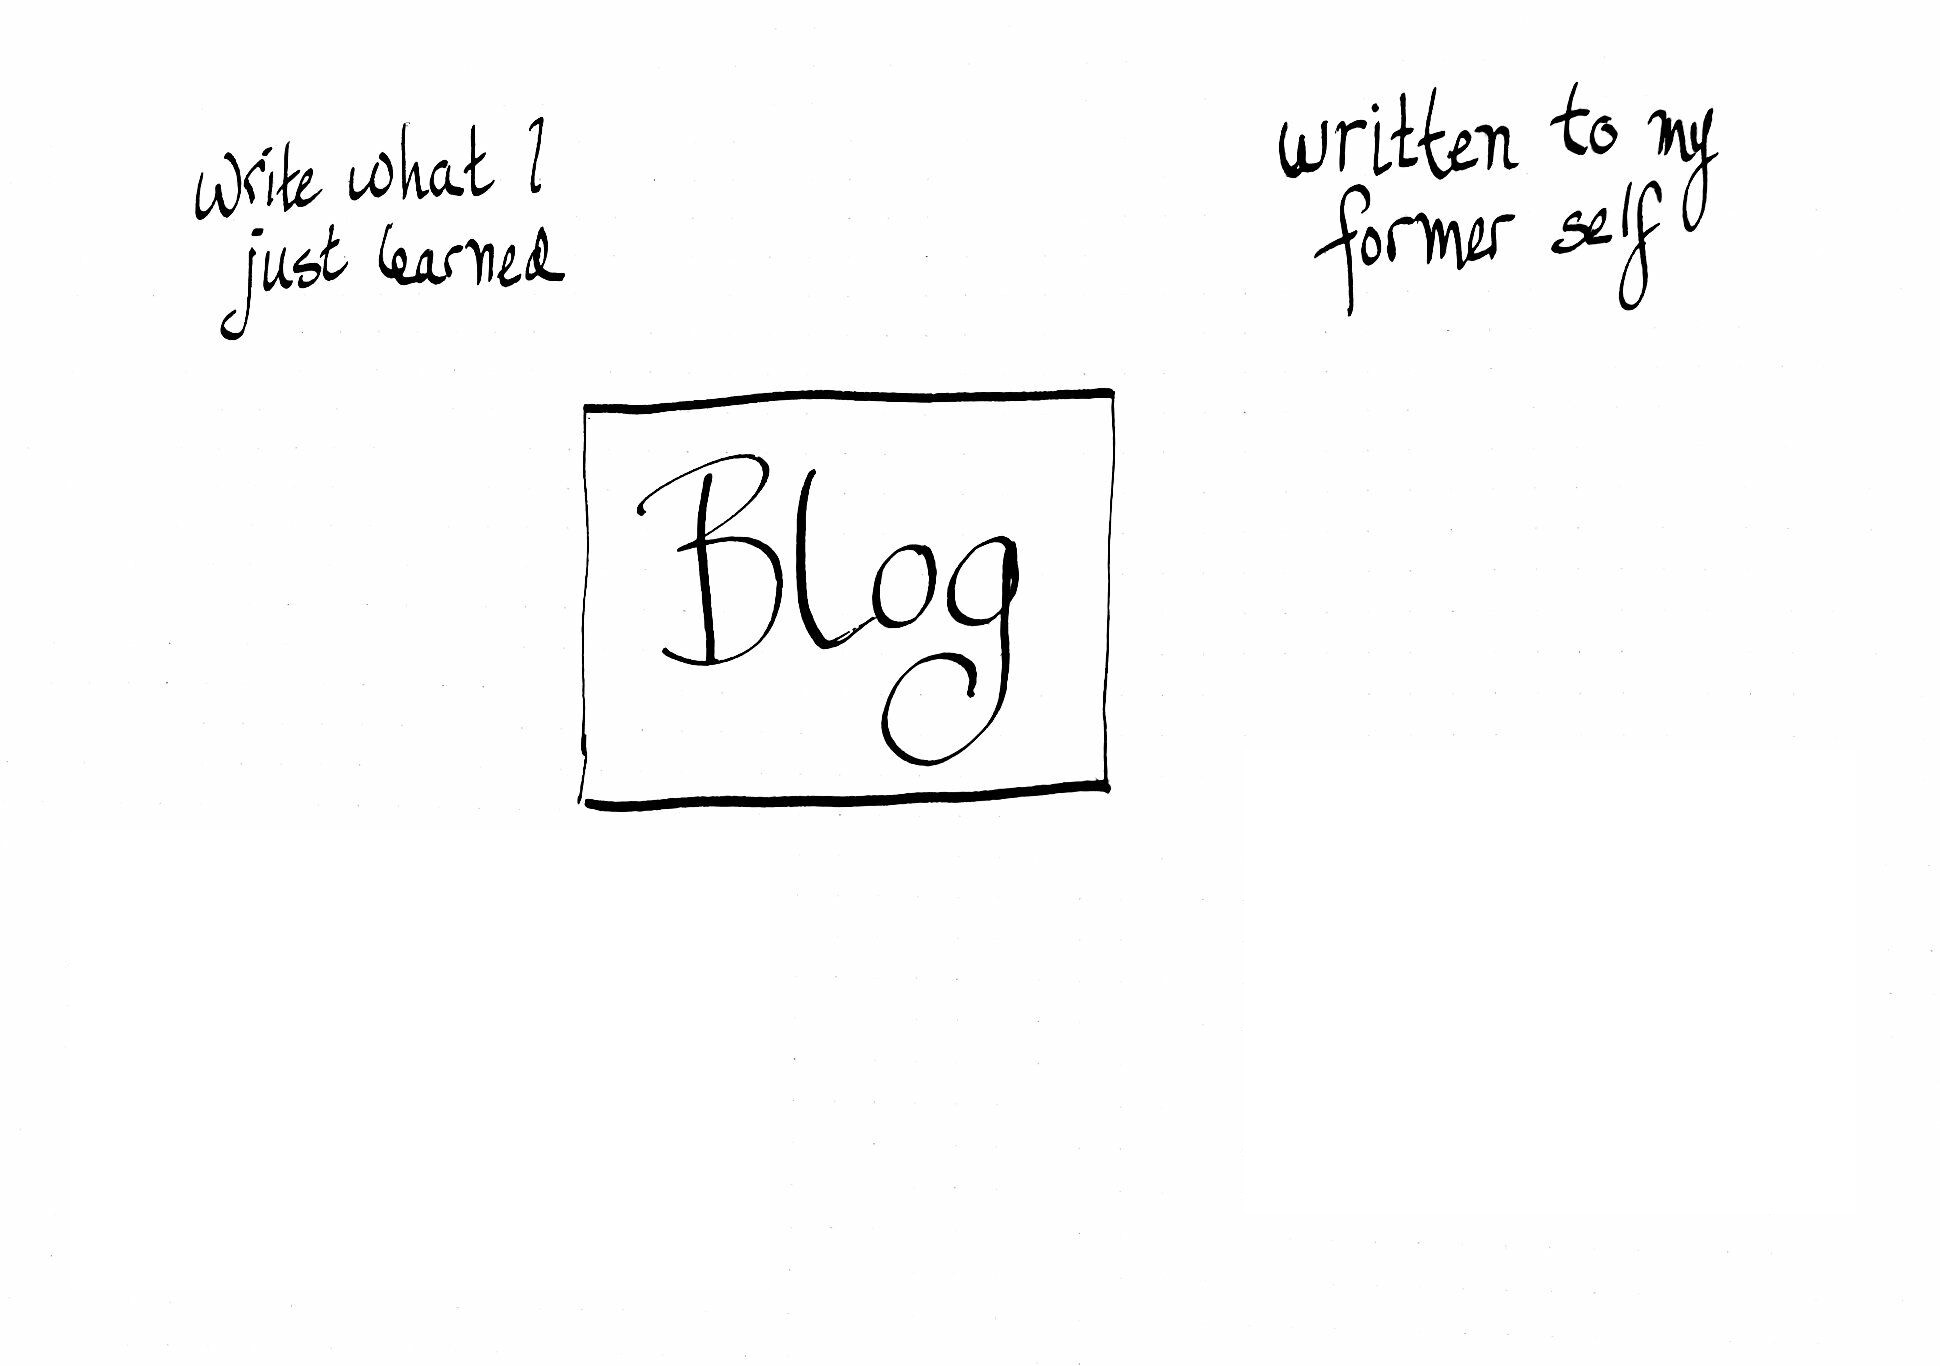 write what I
just learned
written to my
former self
Blog